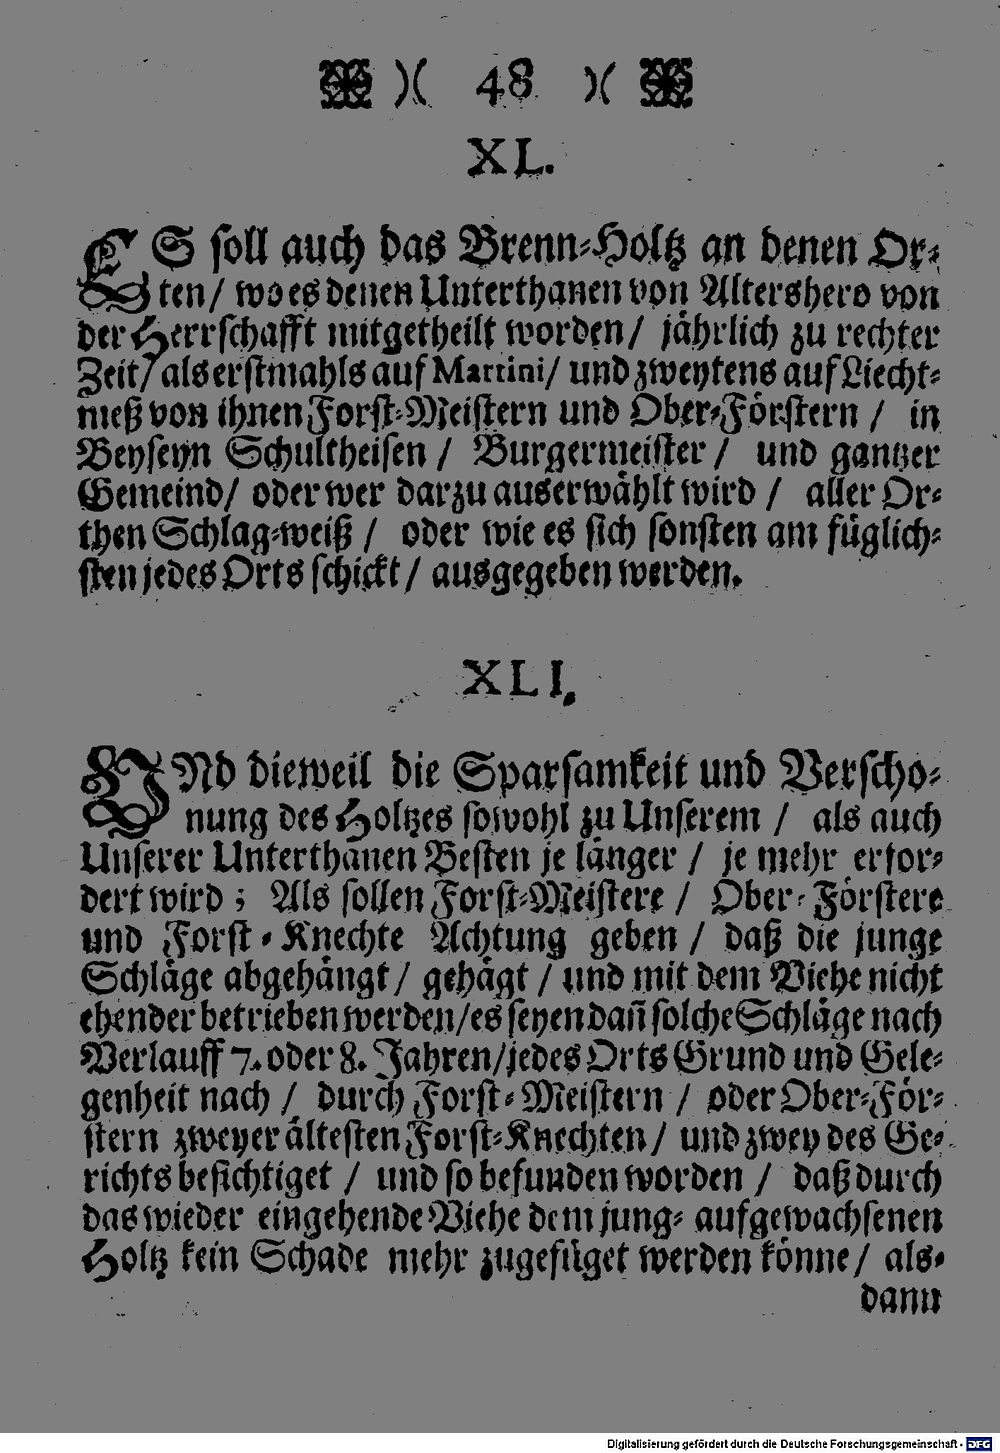 )( 48 )(
XL.
ES soll auch das Brenn-Holtz an denen Or-
ten/ wo es denen Unterthanen von Altershero von
der Herrschafft mitgetheilt worden/ jährlich zu rechter
Zeit/ als erstmahls auf Martini/ und zweytens auf Liecht-
meß von ihnen Forst-Meistern und Ober-Förstern / in
Beyseyn Schultheisen / Burgermeister / und gantzer
Gemeind/ oder wer darzu auserwählt wird / aller Or-
then Schlag-weiß / oder wie es sich sonsten am füglich-
sten jedes Orts schickt / ausgegeben werden.
XLI.
UNd dieweil die Sparsamkeit und Verscho-
nung des Holtzes sowohl zu Unserem / als auch
Unserer Unterthanen Besten je länger / je mehr erfor-
dert wird ; Als sollen Forst-Meistere / Ober-Förstere
und Forst-Knechte Achtung geben / daß die junge
Schläge abgehängt / gehägt / und mit dem Viehe nicht
ehender betrieben werden/ es seyen dañ solche Schläge nach
Verlauff 7. oder 8. Jahren/ jedes Orts Grund und Gele-
genheit nach / durch Forst-Meistern / oder Ober-För-
stern zweyer ältesten Forst-Knechten/ und zwey des Ge-
richts besichtiget / und so befunden worden / daß durch
das wieder eingehende Viehe dem jung-aufgewachsenen
Holtz kein Schade mehr zugefüget werden könne / als-
dann
Digitalisierung gefördert durch die Deutsche Forschungsgemeinschaft - DFG